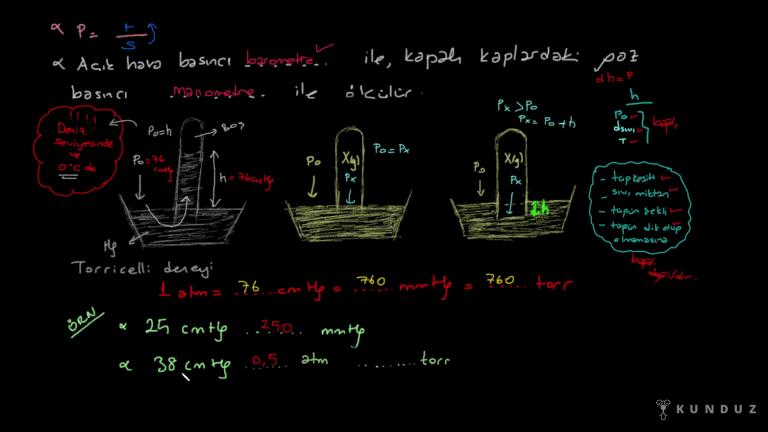 ∝ P = F/S
∝ Açık hava basıncı barometre ile, kapalı kaplardaki gaz
basıncı manometre ile ölçülür.
!!!!
Deniz
seviyesinde
ve
0°C de
P₀=h
BOŞ
P₀=76
cmHg
h=76cmHg
Hg
Torricelli deneyi
P₀
X(g)
Px
P₀=Px
Px>P₀
Px=P₀+h
P₀
X(g)
Px
h
dh=P
h
P₀
dsıvı
T
bağlı
- tüp kesite
- sıvı miktarı
- tüpün şekli
- tüpün dik olup
olmamasına
bağlı
değildir.
1 atm = 76 cmHg = 760 mmHg = 760 torr
ÖRN
∝ 25 cmHg 250 mmHg
∝ 38 cmHg 0,5 atm .......... torr
KUNDUZ